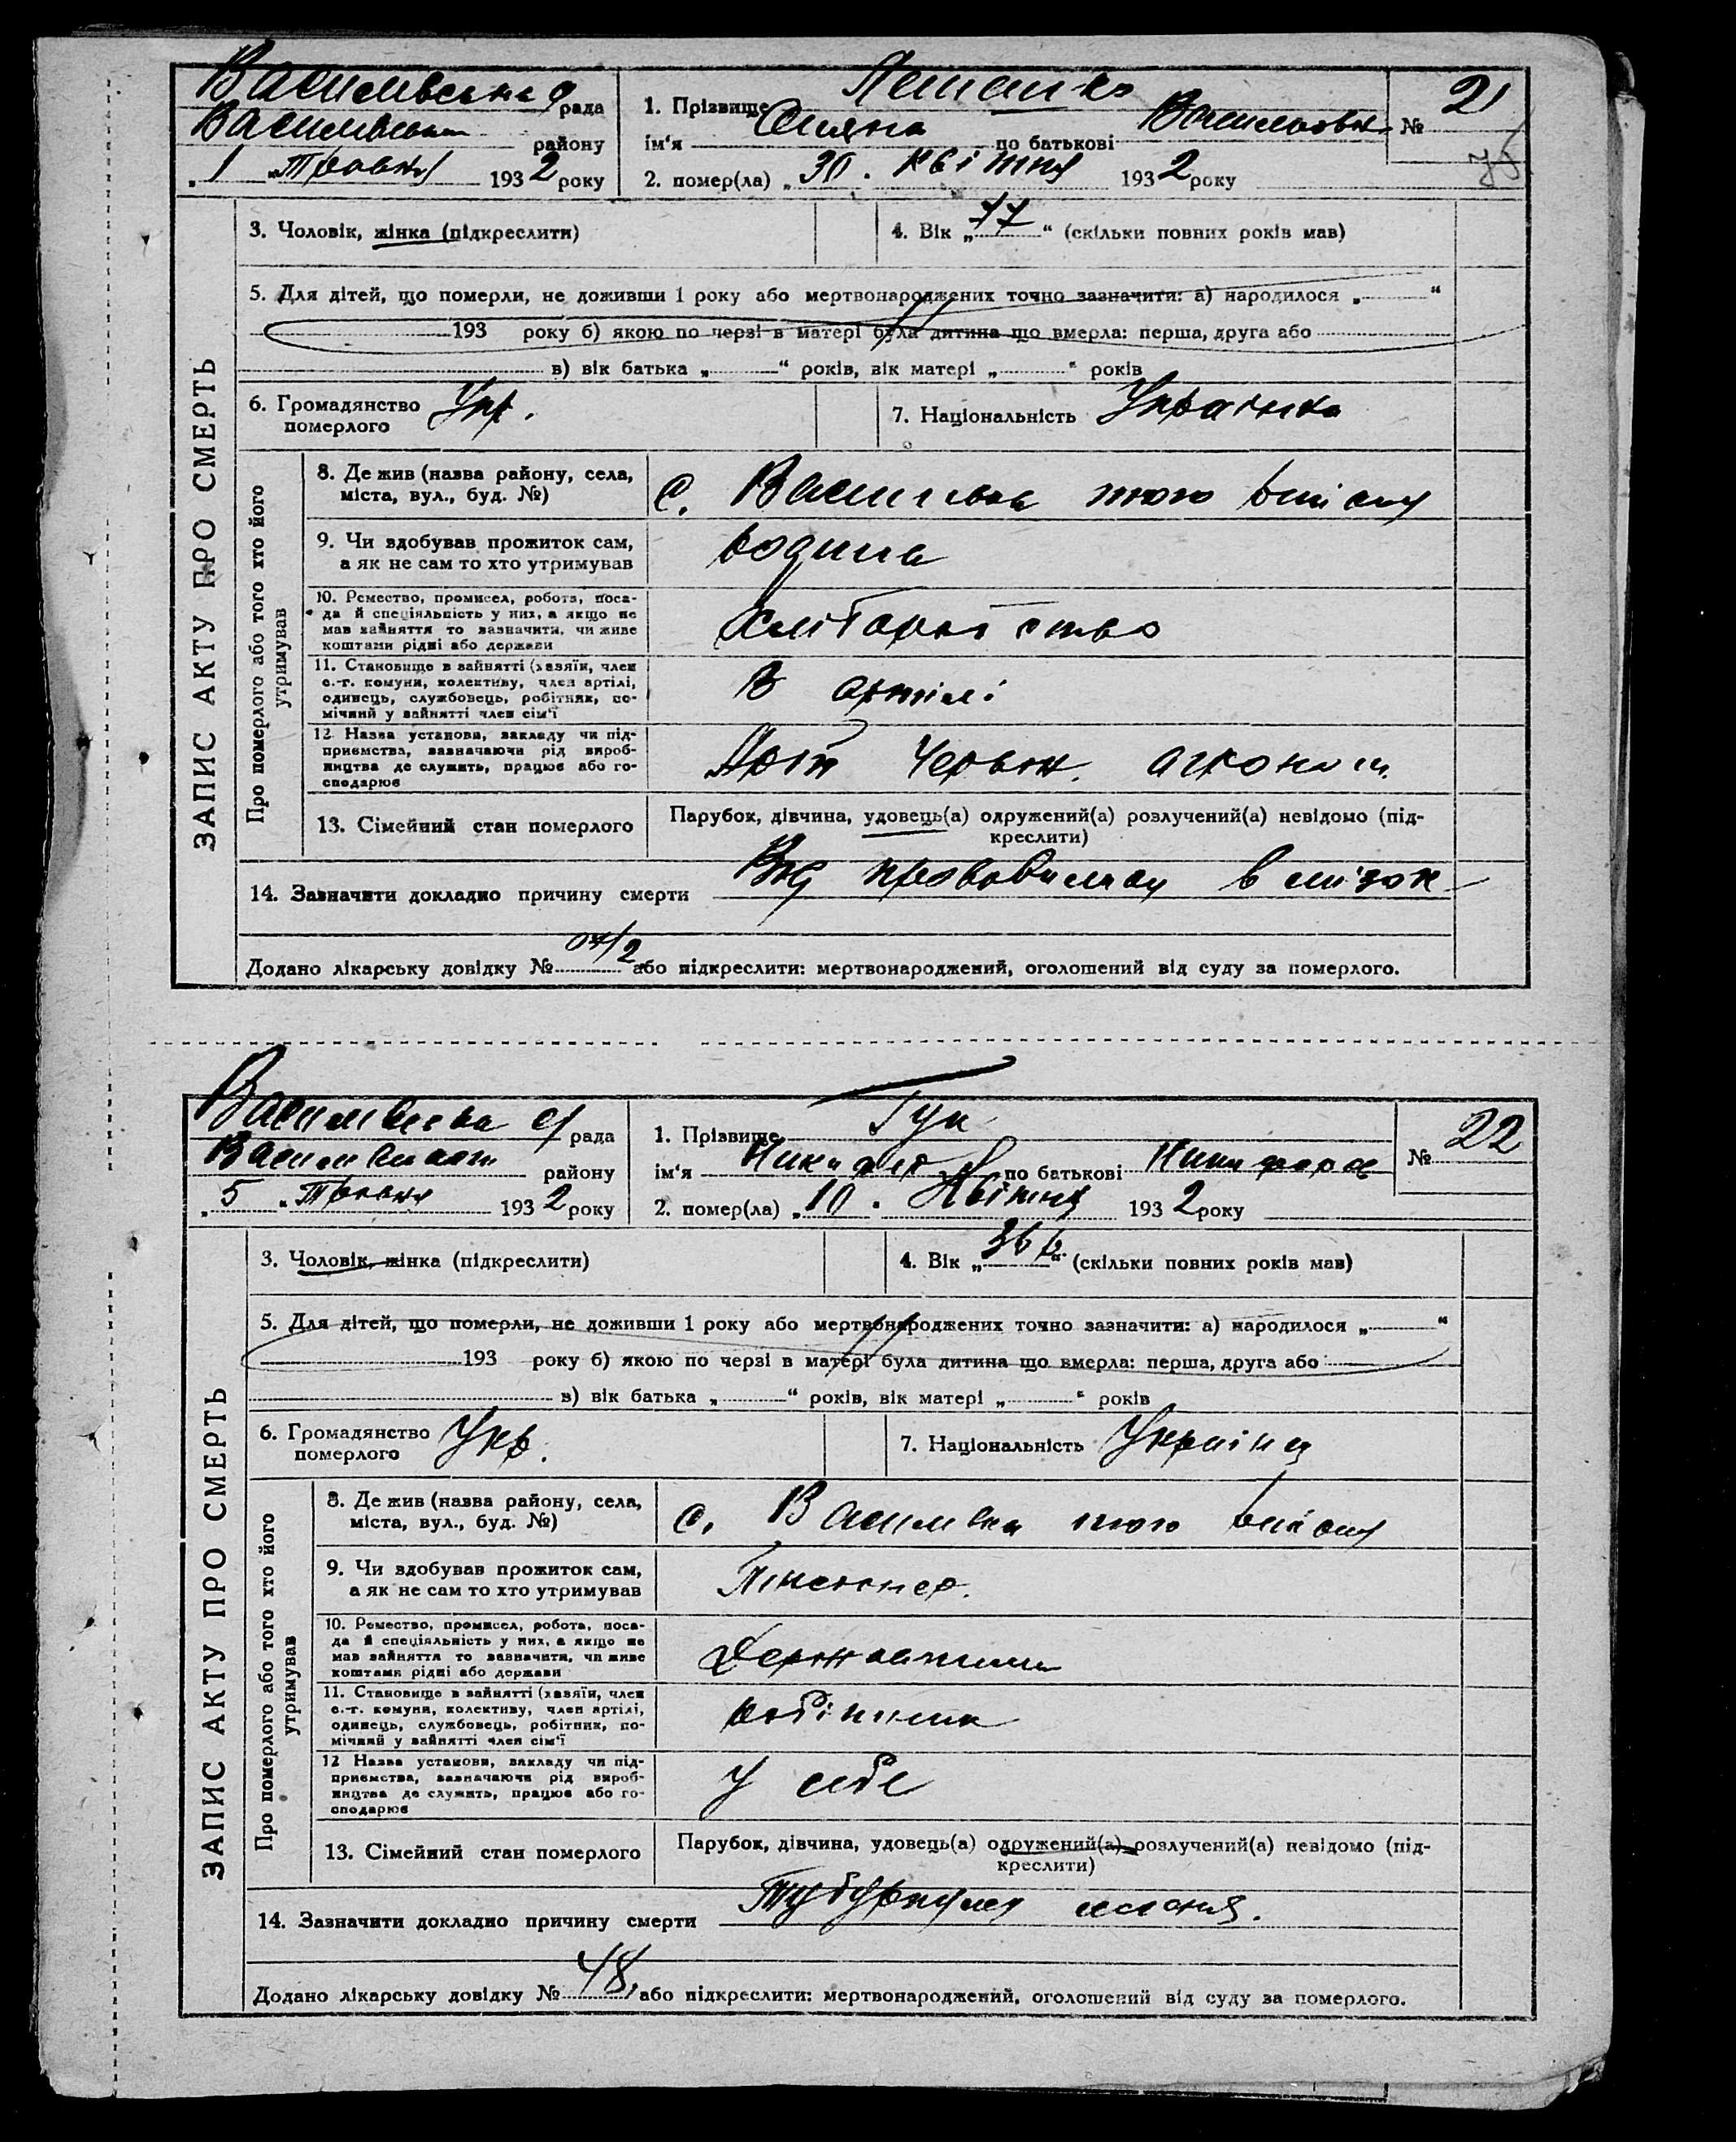 Василівська рада
Василівськ району
„ 1 „ Травня 1932 року
1. Прізвище
ім‘я по батькові
2. помер(ла) „ 30 . квітня 1932 року
№ 21
75
3. Чоловік, жінка (підкреслити)
4. Вік „ 77 “ (скільки повних років мав)
5. Для дітей, що померли, не доживши 1 року або мертвонароджених точно зазначити: а) народилося „ “
193 року б) якою по черзі в матері була дитина що вмерла: перша, друга або
в) вік батька „ “ років, вік матері „ “ років
6. Громадянство померлого Укр.
7. Національність Українка
ЗАПИС АКТУ ПРО СМЕРТЬ
Про померлого або того хто його утримував
8. Де жив (назва району, села,
міста, вул., буд. №)
с. Василівка того
9. Чи здобував прожиток сам,
а як не сам то хто утримував
родина
10. Ремество, промисел, робота, поса-
да й спеціяльність у них, а якщо не
мав зайняття то зазначити, чи живе
коштами рідні або держави
хліборобство
11. Становище в зайнятті (хазяїн, член
с.-г. комуни, колективу, член артілі,
одинець, службовець, робітник, по-
мічний у зайнятті член сім‘ї
В артілі
12 Назва установи, закладу чи під-
приємства, зазначаючи рід вироб-
ництва де служить, працює або го-
сподарює
Арт Червон. агроном.
13. Сімейний стан померлого
Парубок, дівчина, удовець(а) одружений(а) розлучений(а) невідомо (під-
креслити)
14. Зазначити докладно причину смерти в мізок
Додано лікарську довідку № або підкреслити: мертвонароджений, оголошений від суду за померлого.
Василівська рада
Василівськ району
„ 5 „ Травня 1932 року
1. Прізвище Гук
ім‘я Никифор по батькові Никифоров
2. помер(ла) „ 10 . Квітня 1932 року
№ 22
3. Чоловік, жінка (підкреслити)
4. Вік „ 36 р. “ (скільки повних років мав)
5. Для дітей, що померли, не доживши 1 року або мертвонароджених точно зазначити: а) народилося „ “
193 року б) якою по черзі в матері була дитина що вмерла: перша, друга або
в) вік батька „ “ років, вік матері „ “ років
6. Громадянство померлого Укр.
7. Національність Українц
ЗАПИС АКТУ ПРО СМЕРТЬ
Про померлого або того хто його утримував
8. Де жив (назва району, села,
міста, вул., буд. №)
с. Василівка того
9. Чи здобував прожиток сам,
а як не сам то хто утримував
Пенсионер.
10. Ремество, промисел, робота, поса-
да й спеціяльність у них, а якщо не
мав зайняття то зазначити, чи живе
коштами рідні або держави
11. Становище в зайнятті (хазяїн, член
с.-г. комуни, колективу, член артілі,
одинець, службовець, робітник, по-
мічний у зайнятті член сім‘ї
робітник
12 Назва установи, закладу чи під-
приємства, зазначаючи рід вироб-
ництва де служить, працює або го-
сподарює
У себе
13. Сімейний стан померлого
Парубок, дівчина, удовець(а) одружений(а) розлучений(а) невідомо (під-
креслити)
14. Зазначити докладно причину смерти
Додано лікарську довідку № 48, або підкреслити: мертвонароджений, оголошений від суду за померлого.